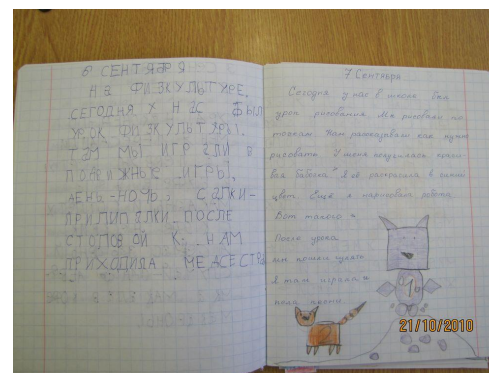 6 СЕНТЯБРЯ
НА ФИЗКУЛЬТУРЕ.
СЕГОДНЯ У НАС БЫЛ
УРОК ФИЗКУЛЬТУРЫ.
ТАМ МЫ ИГРАЛИ В
ПОДВИЖНЫЕ ИГРЫ,
ДЕНЬ-НОЧЬ, САЛКИ-
ПРИЛИПАЛКИ. ПОСЛЕ
СТОЛОВОЙ К НАМ
ПРИХОДИЛА МЕДСЕСТРА
7 Сентября
Сегодня у нас в школе был
урок рисования. Мы рисовали по
точкам. Нам рассказывали как нужно
рисовать. У меня получилась краси-
вая бабочка. Я её раскрасила в синий
цвет. Ещё я нарисовала робота.
Вот такого
После урока
мы пошли гулять
я там играла
21/10/2010